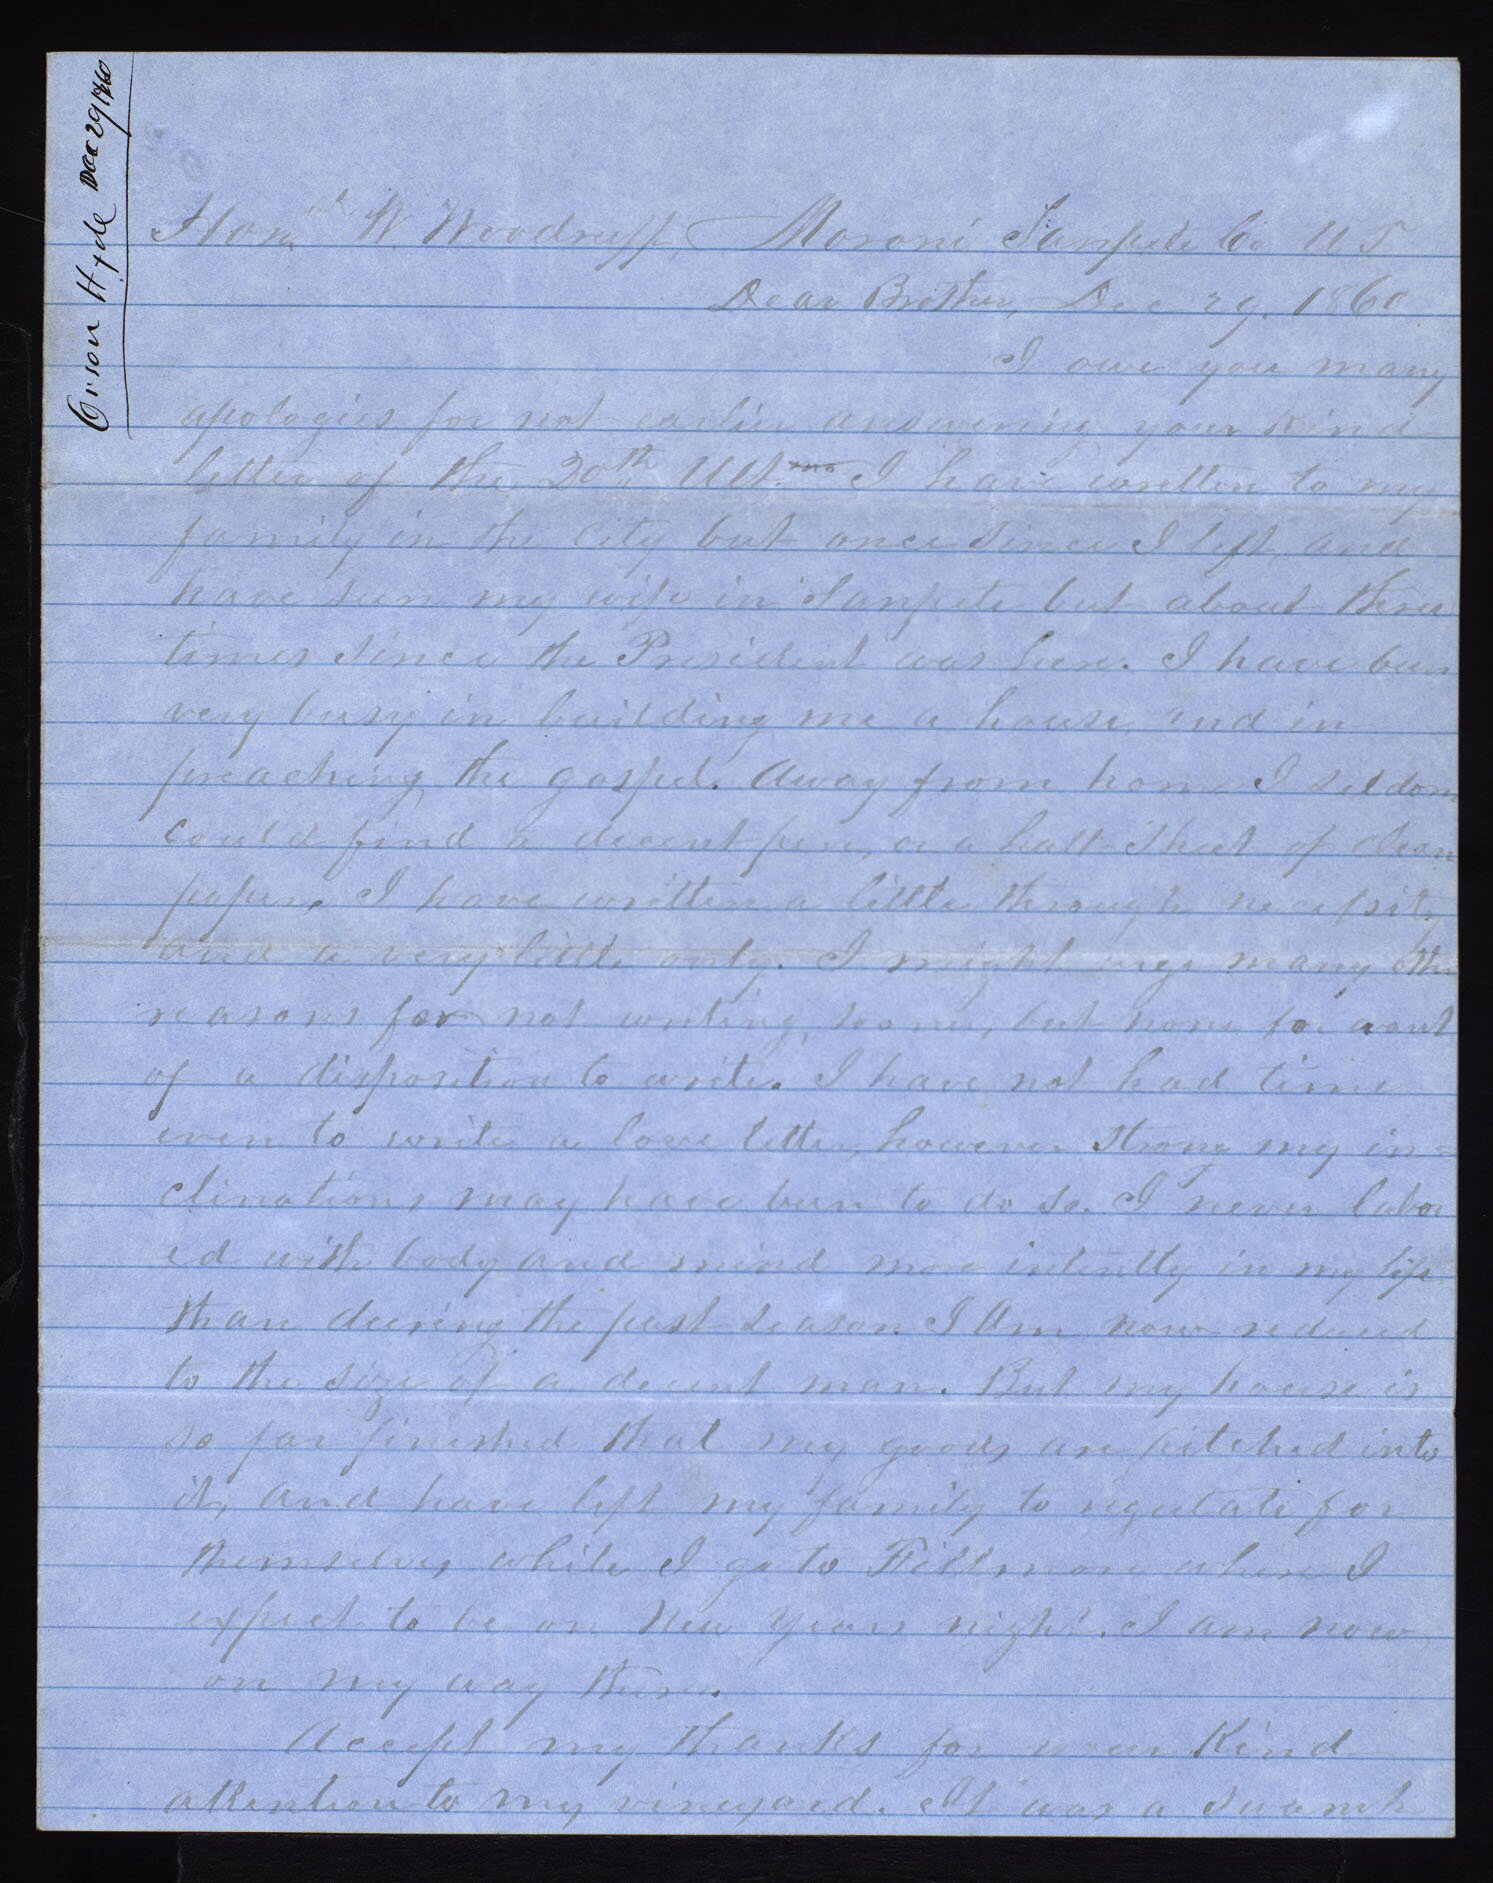 Orson Hyde Dec 29 1860
Hon. W. Woodruff, Moroni Sanpete Co U T
Dear Brother, Dec 29. 1860
I owe you many
apologies for not earlier answering your kind
letter of the 20th Ult. I have written to my
family in the City but once since I left, and
have seen my wife in Sanpete but about three
times since the President was here. I have been
very busy in building me a house and in
preaching the gospel. Away from home I seldom
could find a decent pen, or a half sheet of clean
paper. I have written a little through necessity
and a very little only. I might urge many other
reasons for not writing sooner, but none for want
of a disposition to write. I have not had time
even to write a love letter, however strong my in=
clinations may have been to do so. I never labor
ed with body and mind more intently in my life
than during the past season. I Am now reduced
to the size of a decent man. But my house is
so far finished that my goods are pitched into
it, and have left my family to regulate for
themselves while I go to Fillmore where I
expect to be on New Years night. I am now
on my way there.
Accept my thanks for your Kind
attention to my vineyard. It was a